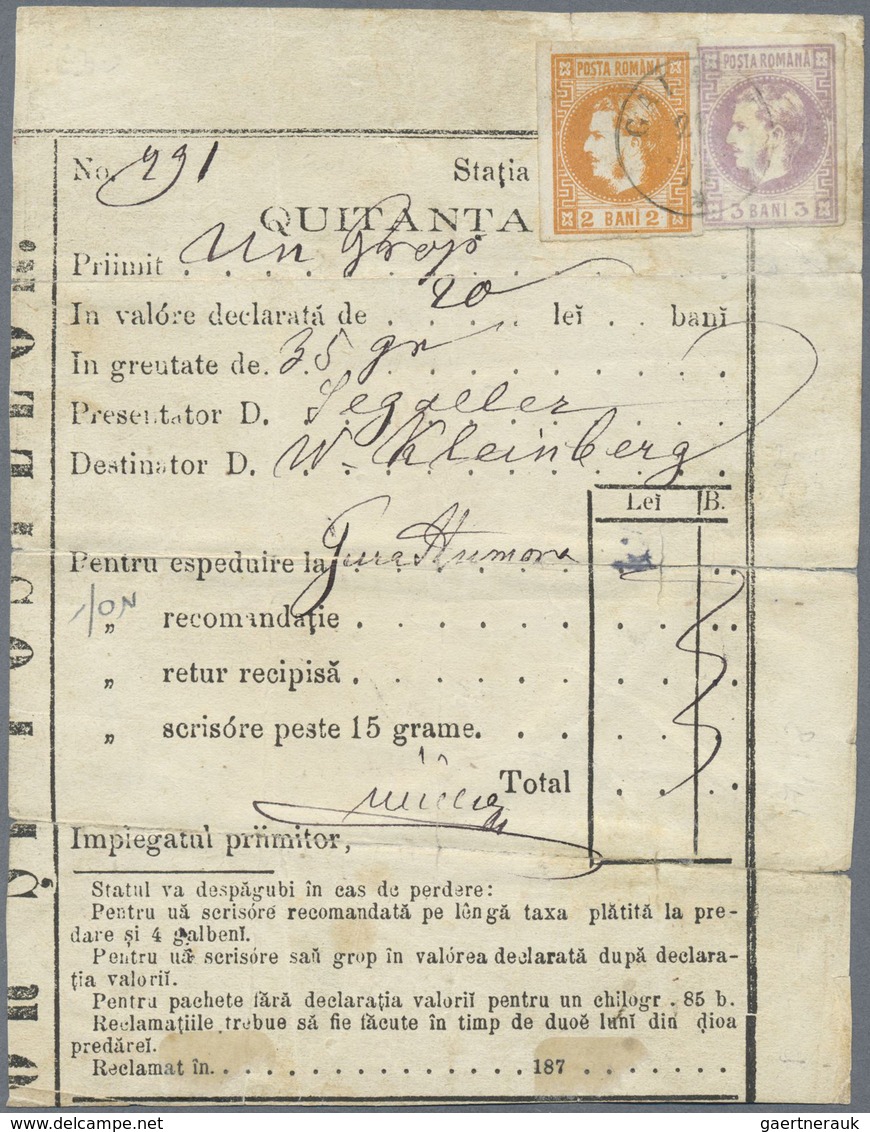 POSTA ROMANĂ POSTA ROMANĂ
2 BANI 2 3 BANI 3
No. 291 Stația
QUITANTA
Priimit un Grop
In valóre declarată de 20 leĭ . . banĭ
In greutate de. 35 gr
Presentator D. Segaller
Destinator D. W. Kleinberg
Leĭ B.
Pentru espeduire la Gura Humora
„ recomandație
„ retur recipisă
„ scrisóre peste 15 grame.
Total
Impiegatul priimitor,
Statul va despăgubi în cas de perdere:
Pentru uă scrisóre recomandată pe lêngă taxa plătită la pre-
dare și 4 galbenĭ.
Pentru uă scrisóre saŭ grop în valórea declarată după declara-
ția valoriĭ.
Pentru pachete fără declarația valoriĭ pentru un chilogr . 85 b.
Reclamațiile trebue să fie făcute în timp de duoĕ lunĭ din ḑioa
predăreĭ.
Reclamat în. 187
gaertnerauk